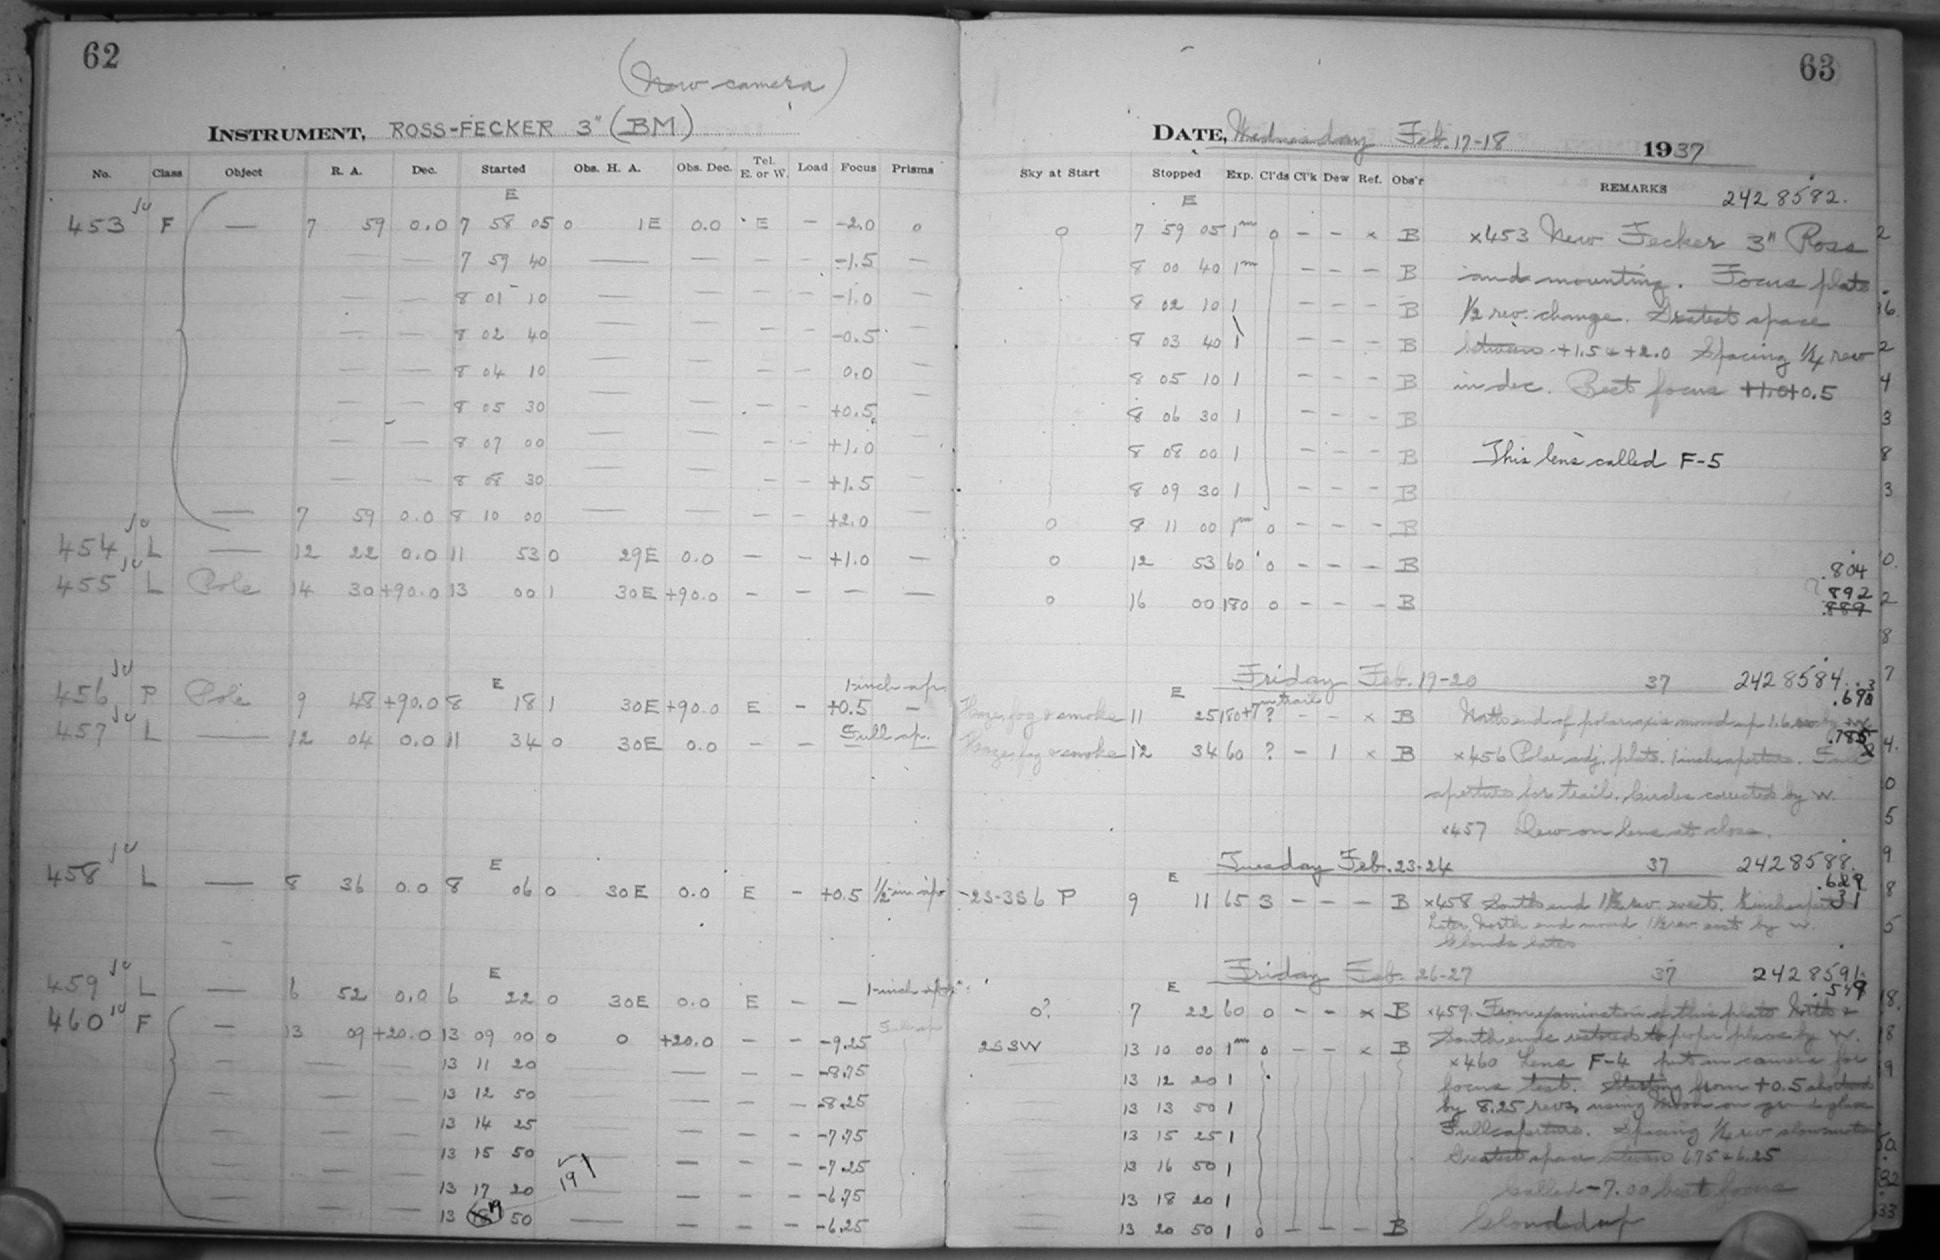 62
(New camera)
INSTRUMENT, ROSS-FECKER 3" (BM)
No. Class Object R. A. Dec. Started Obs. H. A. Obs. Dec. Tel. E. or W. Load Focus Prisms
E
453 F — 7 59 0.0 7 58 05 0 1E 0.0 E — -2.0 0
— — 7 59 40 — — — — -1.5 —
— — 8 01 10 — — — — -1.0 —
— — 8 02 40 — — — — -0.5 —
— — 8 04 10 — — — — 0.0 —
— — 8 05 30 — — — — +0.5 —
— — 8 07 00 — — — — +1.0 —
— — 8 08 30 — — — — +1.5 —
— 7 59 0.0 8 10 00 — — — — +2.0 —
454 L — 12 22 0.0 11 53 0 29E 0.0 — — +1.0 —
455 L Pole 14 30 +90.0 13 00 1 30E +90.0 — — — —
E 1-inch ap.
456 P Pole 9 48 +90.0 8 18 1 30E +90.0 E — +0.5 —
Full ap.
457 L — 12 04 0.0 11 34 0 30E 0.0 — — — —
E
458 L — 8 36 0.0 8 06 0 30E 0.0 E — +0.5 1/2-in ap
E
459 L — 6 52 0.0 6 22 0 30E 0.0 E — — 1-inch ap
Full ap
460 F — 13 09 +20.0 13 09 00 0 0 +20.0 — — -9.25
13 11 20 — — — -8.75
13 12 50 — — — -8.25
13 14 25 — — — -7.75
13 15 50 — — — -7.25
13 17 20 — — — -6.75
19
13 19 50 — — — — -6.25
63
DATE, Wednesday Feb. 17-18 1937
Sky at Start Stopped Exp. Cl'ds Cl'k Dew Ref. Obs'r REMARKS
2428582.
E
0 7 59 05 1m 0 — — x B x453 New Fecker 3" Ross
8 00 40 1m — — — B and mounting. Focus plate
8 02 10 1 — — — B 1/2 rev. change. Greatest space
8 03 40 1 — — — B between +1.5 & +2.0 Spacing 1/4 rev
8 05 10 1 — — — B in dec. Best focus +1.0 +0.5
8 06 30 1 — — — B
8 08 00 1 — — — B This lens called F-5
8 09 30 1 — — — B
0 8 11 00 1m 0 — — — B
0 12 53 60 0 — — — B .804
0 16 00 180 0 — — — B .892
.889
Friday Feb. 19-20 37 2428584.
E .693
Haze, fog & smoke 11 25 180+ ? — — x B North end of polar axis moved up 1.6 by W.
.785
Haze, fog & smoke 12 34 60 ? — 1 x B x456 Polar adj. plate. 1 inch aperture. Full
aperture for trail. Circles corrected by W.
x457 Dew on lens at close.
Tuesday Feb. 23-24 37 2428588.
E .629
-2S-3S6 P 9 11 65 3 — — — B x458 South end 1 1/2 rev. west. 31
Later, North end moved 1 1/2 rev east by W.
Clouds later
Friday Feb. 26-27 37 2428591.
E .549
0? 7 22 60 0 — — x B x459. From examination of this plate North &
South ends restored to proper place by W.
2S3W 13 10 00 1m 0 — — x B x460 Lens F-4 put in camera for
13 12 20 1 focus test. Starting from +0.5
13 13 50 1 by 8.25 revs, using Moon on ground glass
13 15 25 1 Full aperture. Spacing 1/4 rev slow motion
13 16 50 1 Greatest space between 6.75 & 6.25
13 18 20 1 Called -7.00 best focus
13 20 50 1 0 — — — B Clouded up